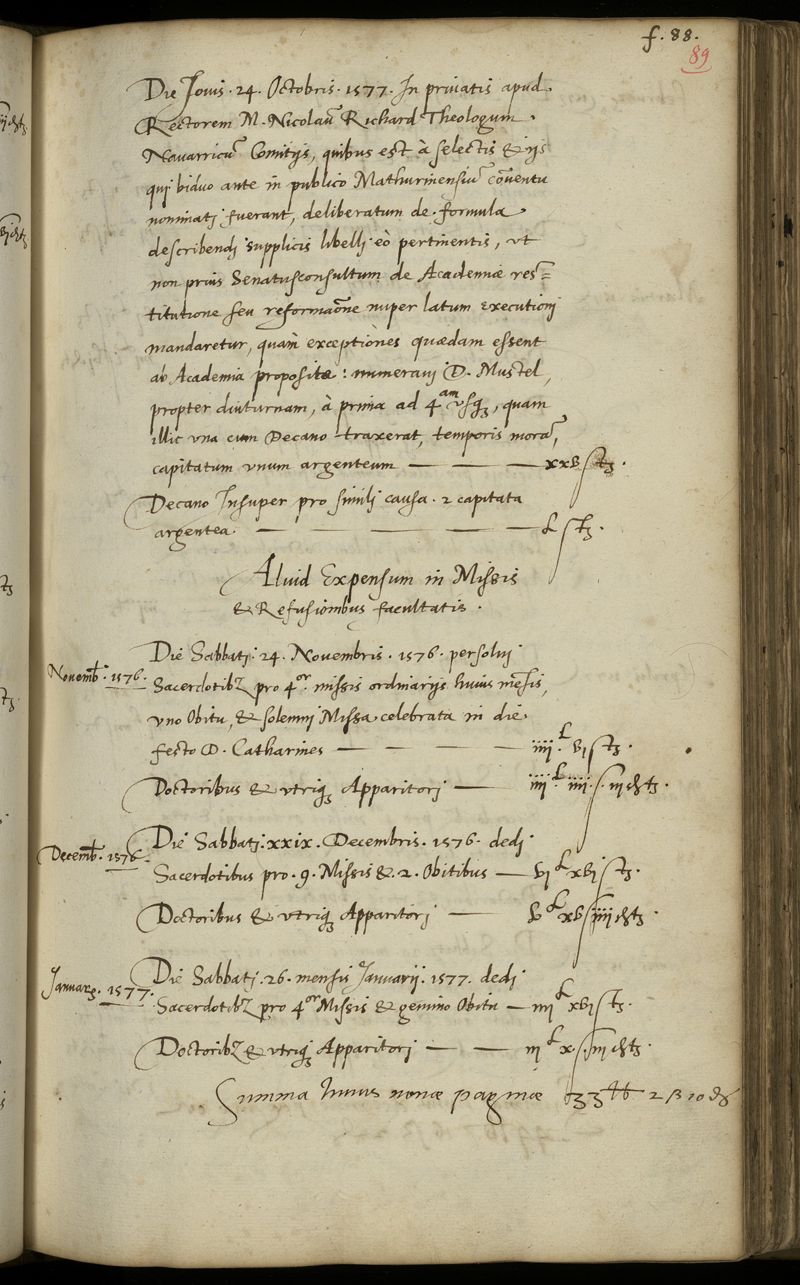 f. 88.
89
Die Jouis. 24. Octobris. 1577. In priuatis apud.
Rectorem M. Nicolaū Richard Theologum.
Nauarricū Comitijs, quibus est à selectis & ijs
quj biduo ante in publico Mathurinensiū cōuentu
nominatj fuerant, deliberatum de formula
describendj supplicis libelli eò pertinentis, vt
non prius Senatusconsultum de Academiæ res=
titutione seu reformaōne nuper latum executionj
mandaretur, quàm exceptiones quædam essent
ab Academia propositæ: numeravj D. Mustel,
propter diuturnam, à prima ad 4am vsq,, quam
illic vna cum Decano traxerat, temporis morā,
capitatum vnum argenteum — — — xxv s tz.
Decano Insuper pro similj causa. 2 capitata
argentea. — — — — — L s tz.
Aliud Expensum in Missis
& Refusionibus facultatis.
Die Sabbatj. 24. Nouembris. 1576. persoluj
Nouemb. 1576.
Sacerdotibz pro 4or. missis ordinarijs huius mēsis,
vno Obitu, & solemnj Missa celebrata in die
festo D. Catharines — — — — iiij L vj s tz.
Doctoribus & vtriq, Apparitorj — iiij L iiij. s. iij d tz.
Die Sabbatj. xxix. Decembris. 1576. dedj
Decemb. 1576.
Sacerdotibus pro. 9. Missis &. 2. Obitibus — vj L xvj s tz.
Doctoribus & vtriq, Apparitorj — v L xv s iiij d tz.
Die Sabbatj. 26. mensis Januarij. 1577. dedj
Januarz. 1577.
Sacerdotibz pro 4or Missis & gemino Obitu — iiij L xvj s tz.
Doctoribz & vtriq, Apparitorj — — iij L x s. iij d tz.
Summa huius nonæ paginæ 33 ℔ 2 ß 10 d